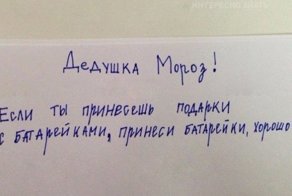 ИНТЕРЕСНО ЗНАТЬ
Дедушка Мороз!
Если ты принесешь подарки
с батарейками, принеси батарейки, хорошо